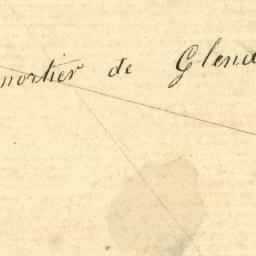 mortier de Glena